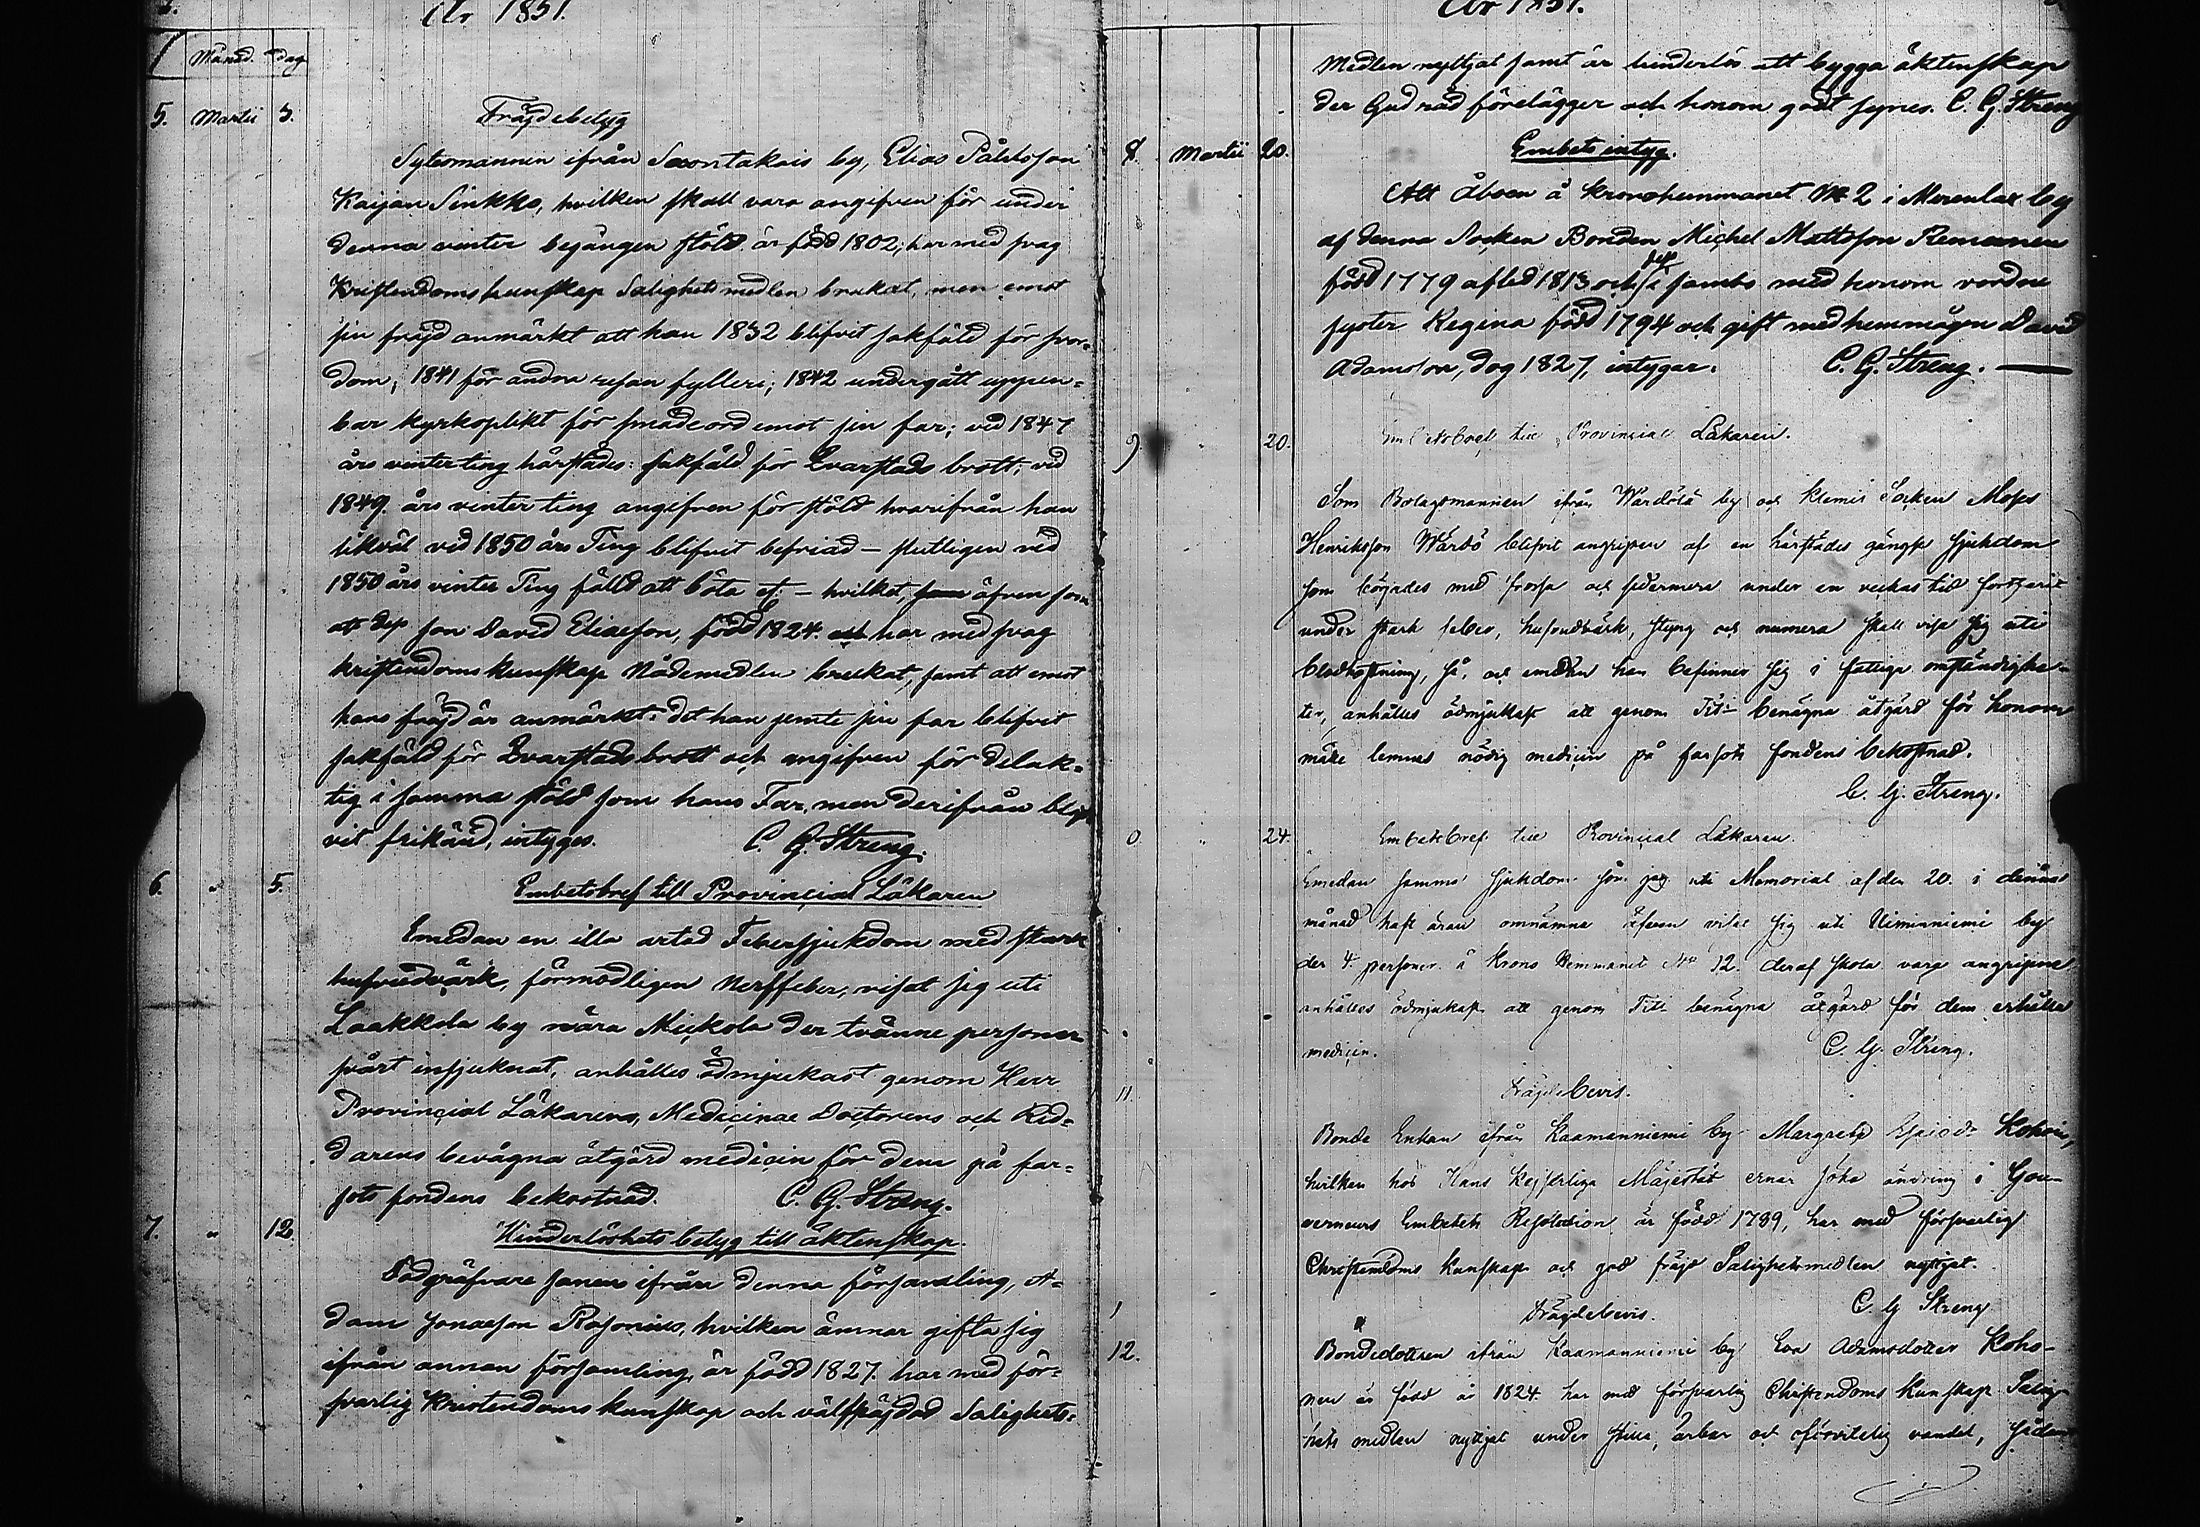 År 1851.
Månad. dag
5. Martii 3.
Frägdebetyg
Sytesmannen ifrån Savontakais by, Elias Pålsson
Kaijan Sinkko, hvilken skall vara angifven för under
denna vinter begången stöld är född 1802; har med svag
Kristendoms kunskap Salighets medlen brukat, men emot
sin frägd anmärkt att han 1832 blifvit sakfäld för svor=
dom; 1841 för andra resan fylleri; 1842 undergått uppen=
bar kyrkoplikt för smädeord emot sin far; vid 1847
års vinterting härstädes: sakfäld för Qvarstads brott; vid
1849. års vinter ting angifven för stöld hvarifrån han
likväl vid 1850 års Ting blifvit befriad – slutligen vid
1850 års vinter Ting fälld att böta – hvilket äfven som
att dess son David Eliasson, född 1824. har med svag
kristendoms kunskap Nådemedlen brukat, samt att emot
hans frägd är anmärkt: det han jemte sin far blifvit
sakfäld för Qvarstads brott och angifven för delak=
tig i samma stöld som hans Far, men derifrån blif
vit frikänd, intyges. C. G. Streng.
6. " 5.
Embetsbref till Provincial Läkaren
Emedan en illa artad Febersjukdom med stark
hufvudvärk, förmodligen Nerffeber, visat sig uti
Laakkola by nära Mickola der tvänne personer
svårt insjuknat, anhålles ödmjukast genom Herr
Provincial Läkarens, Medicinae Doctorens och Rid=
darens bevågna åtgärd medicin för dem på far=
sots fondens bekostnad. C. G. Streng.
7. " 12.
Hinderlöshets betyg till äktenskap.
Dödgräfvare sonen ifrån denna församling, A=
dam Jonasson Rosonius, hvilken ämnar gifta sig
ifrån annan församling, är född 1827. har med för=
svarlig Kristendoms kunskap och välfrägdad Salighets=
År 1851.
Medlen nyttjat samt är hinderlös att bygga äktenskap
der Gud råd förelägger och honom godt synes. C. G. Streng
8. Martii 20.
Embets intyg.
Att Åboen å kronohemmanet № 2 i Merenlax by
af denna Socken Bonden Michel Mattsson Remanen
född 1779 afled 1813 och dess sambo med honom vordne
syster Regina född 1794 och gift med hemmågen David
Adamsson, dog 1827, intygar. C. G. Streng.
9 " 20.
Embetsbref till Provincial Läkaren.
Som Bolagsmannen ifrån Wärdölä by och Klemis Socken Moses
Henriksson Wärdö blifvit angripen af en härstädes gängse sjukdom
som börjades med frossa och sedermera under en veckas tid fortfarit
under stark feber, hufvudvärk, styng och numera skall visa sig uti
blodhostning, så, och emedan han befinner sig i fattiga omständighe=
ter, anhålles ödmjukast att genom Titl benägna åtgärd för honom
måtte lemnas nödig medicin på farsots fondens bekostnad.
C. G. Streng.
0 " 24.
Embetsbref till Provincial Läkaren.
Emedan samma sjukdom som jag uti Memorial af den 20. i denna
månad haft äran omnämna äfven visat sig uti Uiminniemi by
der 4. personer å Krono Hemmanet № 12. deraf skola vara angripne
anhålles ödmjukast att genom Titl benägna åtgärd för dem erhålla
medicin. C. G. Streng.
11.
Frägdebevis.
Bonde Enkan ifrån Kaamanniemi by Margreta Esaiæd. Kohoin,
hvilken hos Hans Kejserliga Majestät ernar söka ändring i Gou=
verneurs Embetets Resolution är född 1789, har med försvarlig
Christendoms kunskap och god frägd Salighetsmedlen nyttjat.
C. G Streng
Frägdebevis.
12.
Bondedottren ifrån Kaamanniemi by Eva Adamsdotter Koho=
nen är född år 1824. har med försvarlig Christendoms kunskap Salig
hets medlen nyttjat under stilla, ärbar och oförvitelig vandel, sådan